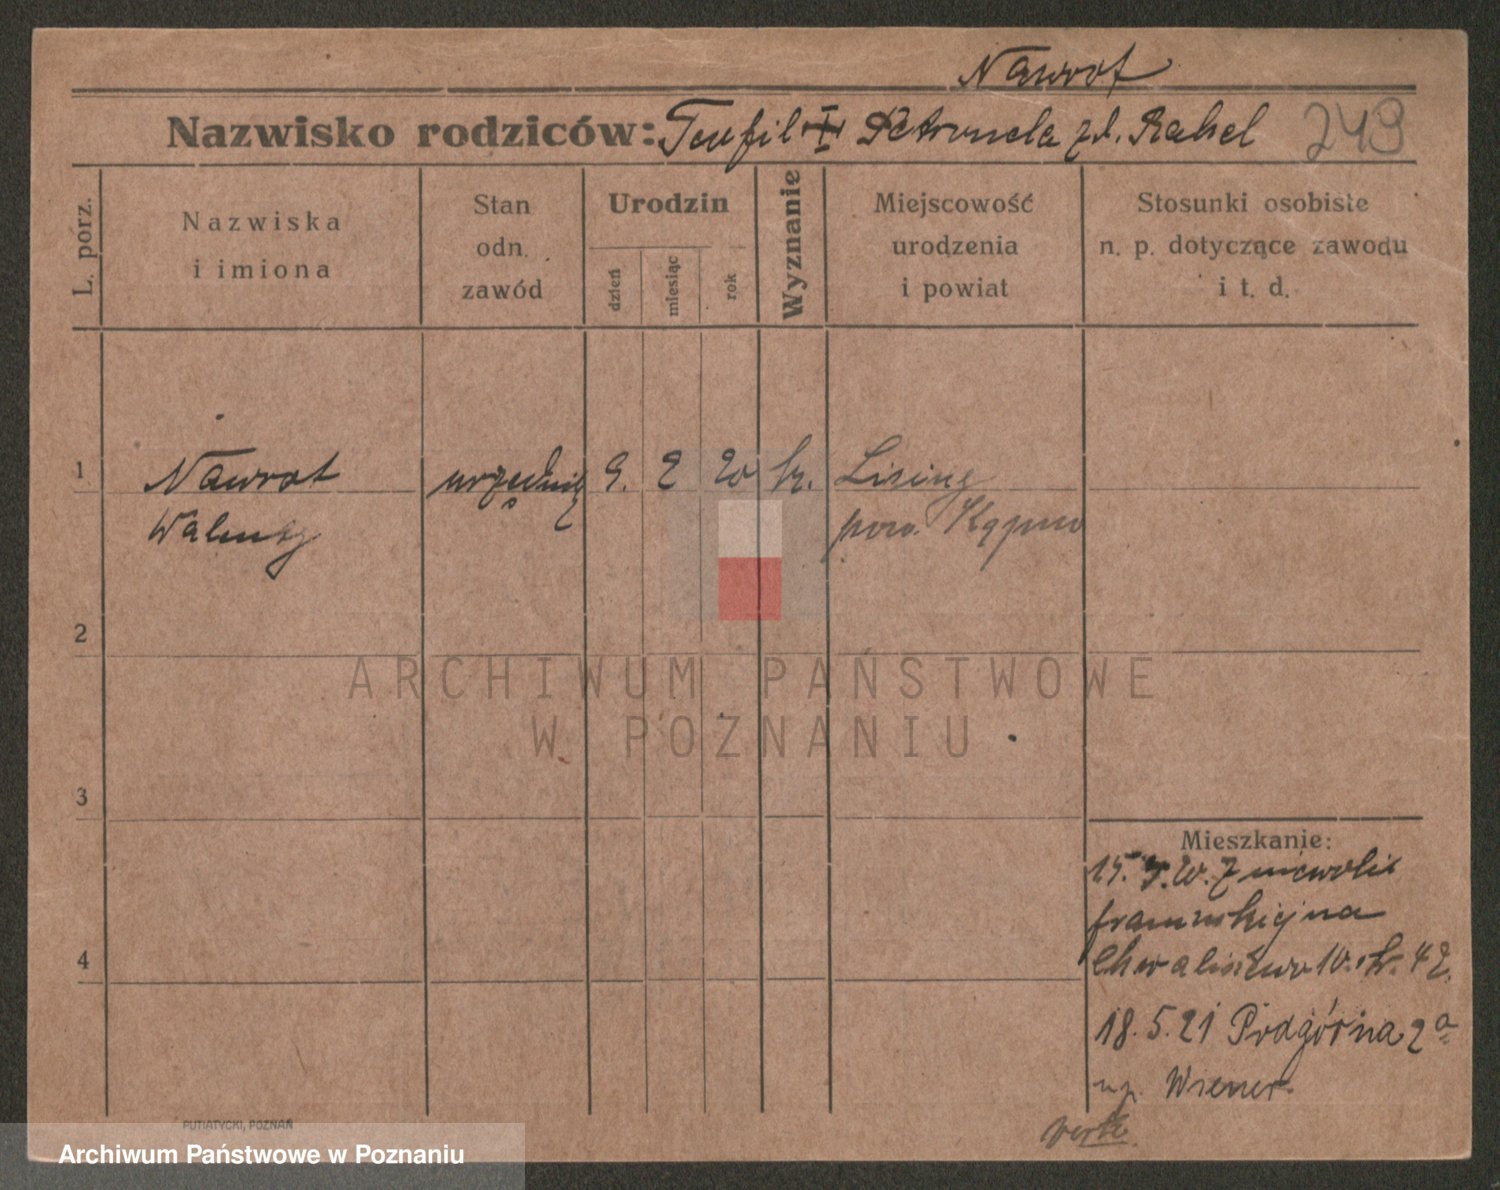 Nawrot
Nazwisko rodziców: Teofil I Petronela zd. Rahel 249
L. porz.
Nazwiska
i imiona
Stan
odn.
zawód
Urodzin
dzień
miesiąc
rok
Wyznanie
Miejscowość
urodzenia
i powiat
Stosunki osobiste
n. p. dotyczące zawodu
i t. d.
1
Nawrot
Walenty
urzędnik
9. 2 20
pow. Kępno
2
ARCHIWUM PAŃSTWOWE
W POZNANIU
3
Mieszkanie:
15. 20. z niewoli
na
Chwaliszewo 10.
4
18.5.21 Podgórna 2a
Wiener
PUTIATYCKI, POZNAŃ
Archiwum Państwowe w Poznaniu